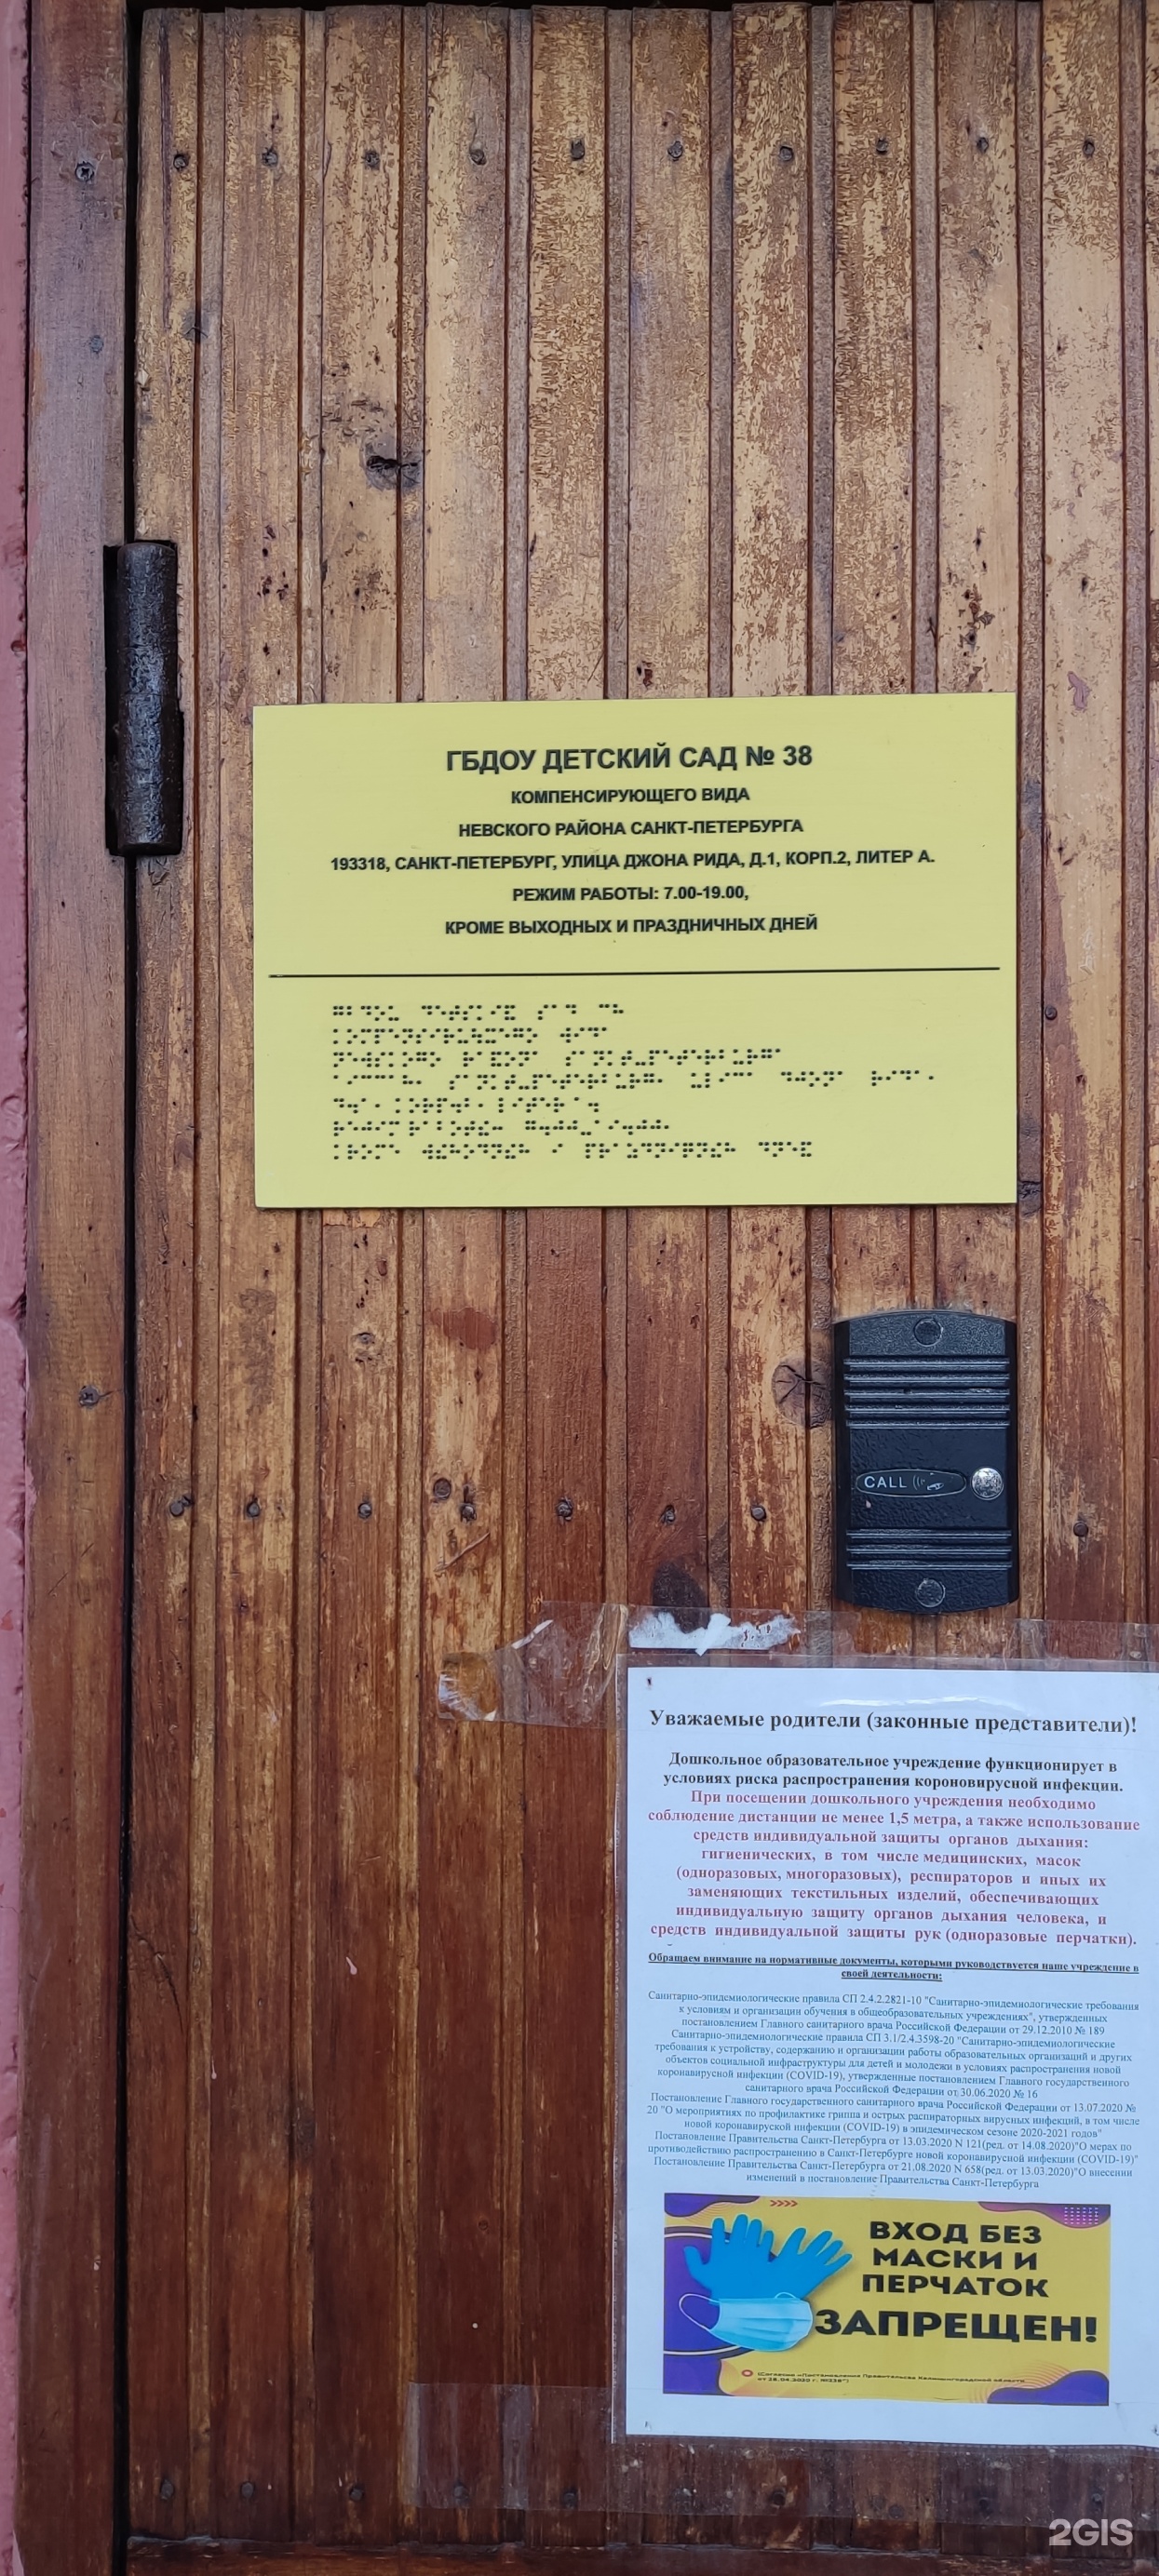 ГБДОУ ДЕТСКИЙ САД № 38
КОМПЕНСИРУЮЩЕГО ВИДА
НЕВСКОГО РАЙОНА САНКТ-ПЕТЕРБУРГА
193318, САНКТ-ПЕТЕРБУРГ, УЛИЦА ДЖОНА РИДА, Д.1, КОРП.2, ЛИТЕР А.
РЕЖИМ РАБОТЫ: 7.00-19.00,
КРОМЕ ВЫХОДНЫХ И ПРАЗДНИЧНЫХ ДНЕЙ
CALL
Уважаемые родители (законные представители)!
Дошкольное образовательное учреждение функционирует в
условиях риска распространения короновирусной инфекции.
При посещении дошкольного учреждения необходимо
соблюдение дистанции не менее 1,5 метра, а также использование
средств индивидуальной защиты органов дыхания:
гигиенических, в том числе медицинских, масок
(одноразовых, многоразовых), респираторов и иных их
заменяющих текстильных изделий, обеспечивающих
индивидуальную защиту органов дыхания человека, и
средств индивидуальной защиты рук (одноразовые перчатки).
Обращаем внимание на нормативные документы, которыми руководствуется наше учреждение в
своей деятельности:
Санитарно-эпидемиологические правила СП 2.4.2.2821-10 "Санитарно-эпидемиологические требования
к условиям и организации обучения в общеобразовательных учреждениях", утвержденных
постановлением Главного санитарного врача Российской Федерации от 29.12.2010 № 189
Санитарно-эпидемиологические правила СП 3.1/2.4.3598-20 "Санитарно-эпидемиологические
требования к устройству, содержанию и организации работы образовательных организаций и других
объектов социальной инфраструктуры для детей и молодежи в условиях распространения новой
коронавирусной инфекции (COVID-19), утвержденные постановлением Главного государственного
санитарного врача Российской Федерации от 30.06.2020 № 16
Постановление Главного государственного санитарного врача Российской Федерации от 13.07.2020 №
20 "О мероприятиях по профилактике гриппа и острых распираторных вирусных инфекций, в том числе
новой коронавирусной инфекции (COVID-19) в эпидемическом сезоне 2020-2021 годов"
Постановление Правительства Санкт-Петербурга от 13.03.2020 N 121(ред. от 14.08.2020)"О мерах по
противодействию распространению в Санкт-Петербурге новой коронавирусной инфекции (COVID-19)"
Постановление Правительства Санкт-Петербурга от 21.08.2020 N 658(ред. от 13.03.2020)"О внесении
изменений в постановление Правительства Санкт-Петербурга
ВХОД БЕЗ
МАСКИ И
ПЕРЧАТОК
ЗАПРЕЩЕН!
(Согласно «Постановления Правительства Калининградской области
2GIS